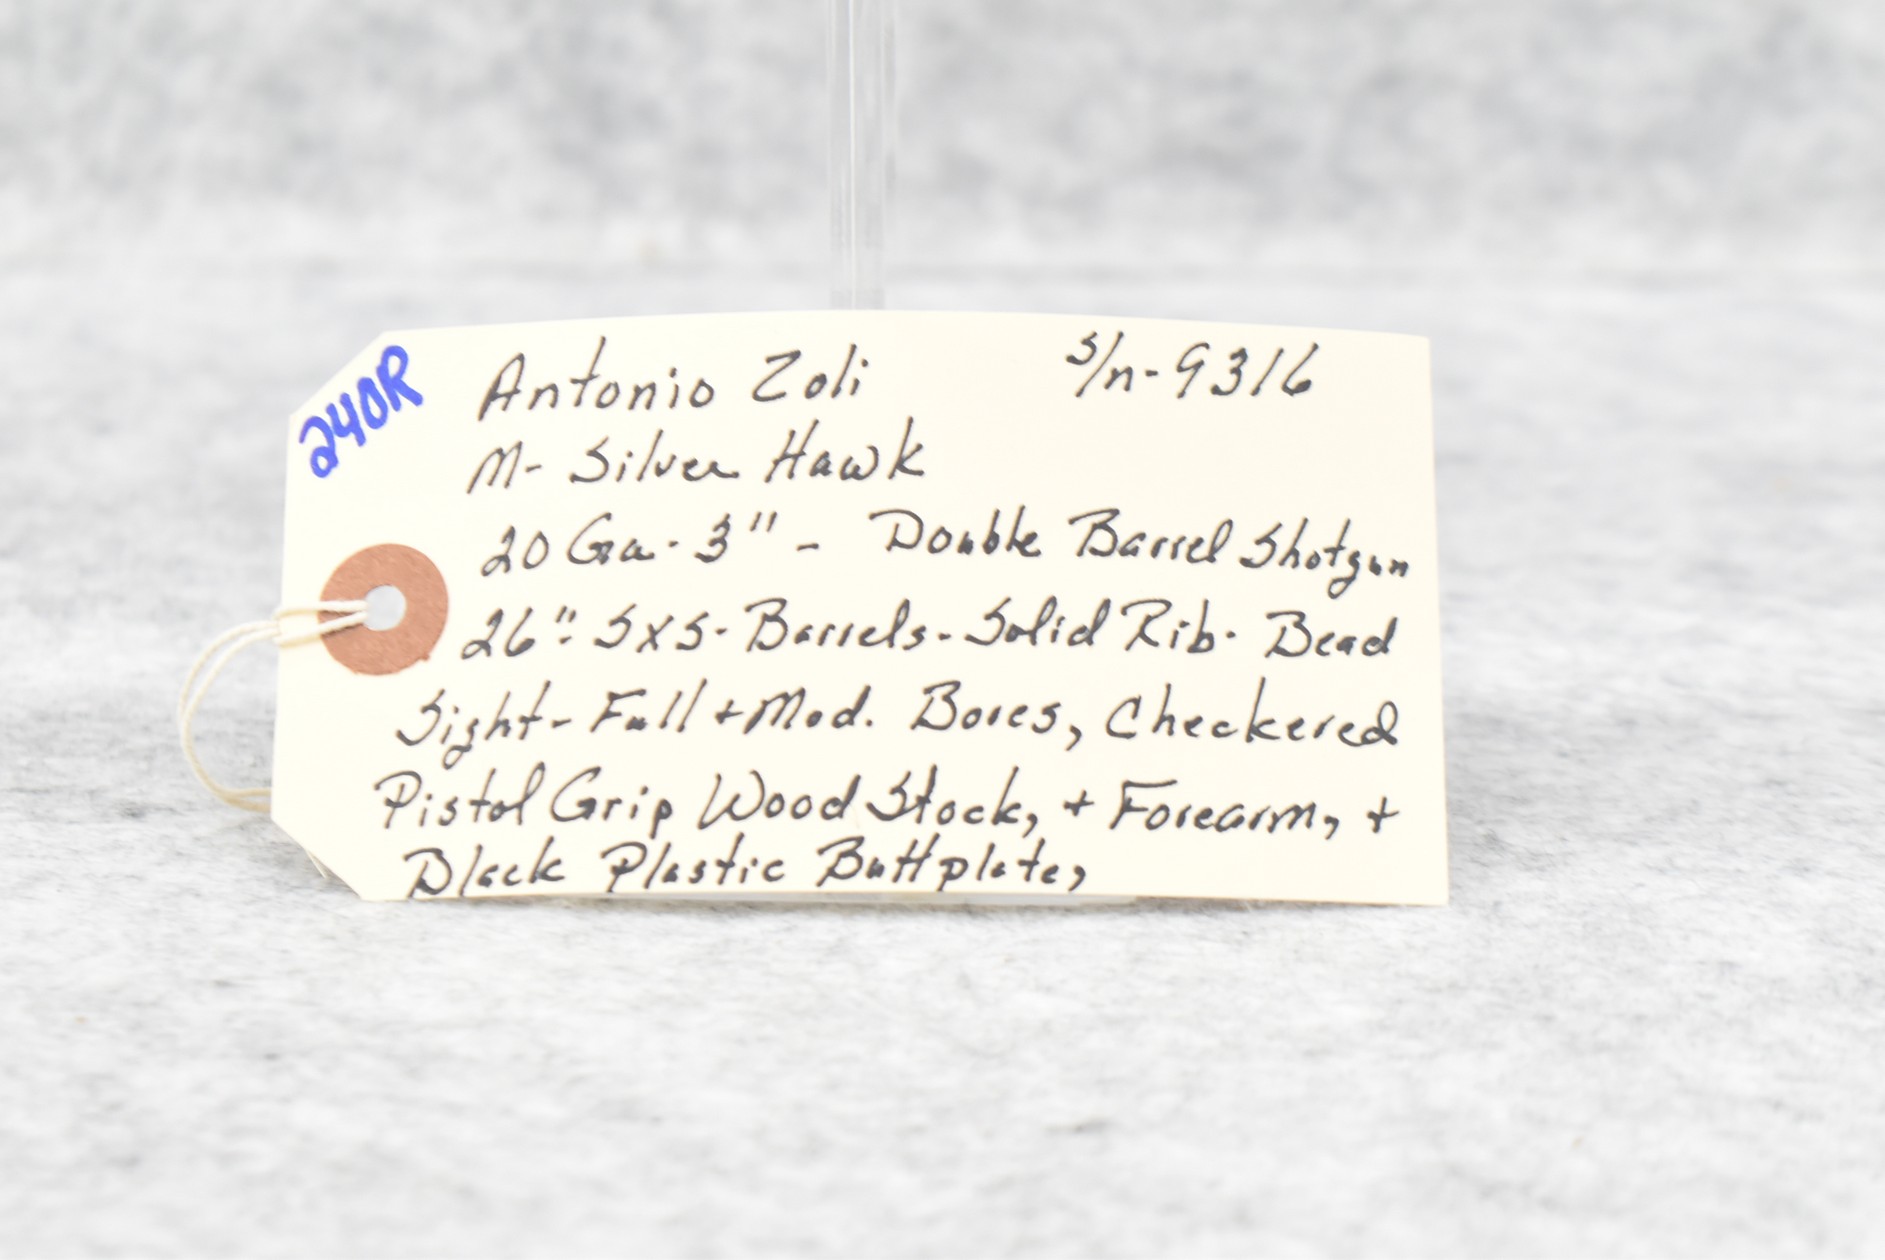 240R
Antonio Zoli s/n-9316
M- Silver Hawk
20 Ga-3" - Double Barrel Shotgun
26"- SXS- Barrels- Solid Rib- Bead
Sight- Full + Mod. Bores, Checkered
Pistol Grip Wood Stock, + Forearm, +
Black Plastic Buttplate,